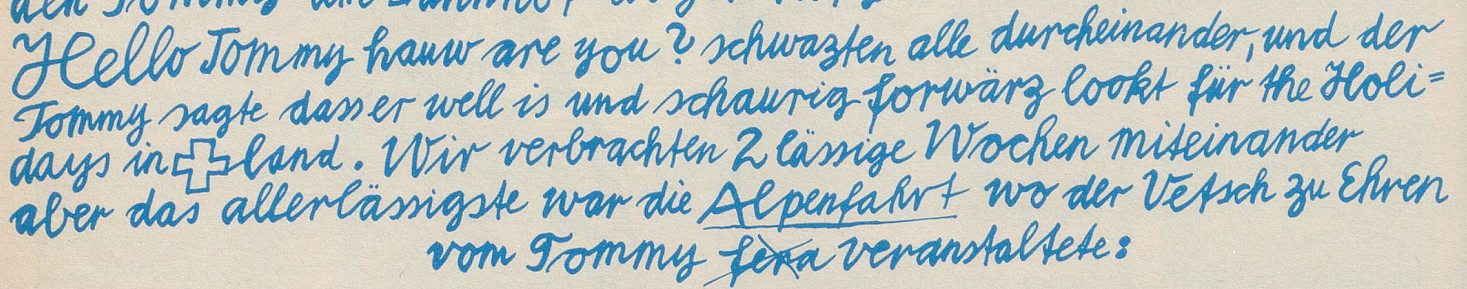 den Tommy am Bahnhof
Hello Tommy hauw are you? schwazten alle durcheinander, und der
Tommy sagte dasser well is und schaurig forwärz lookt für the Holi=
days in ✚land. Wir verbrachten 2 lässige Wochen miteinander
aber das allerlässigste war die Alpenfahrt wo der Vetsch zu Ehren
vom Tommy fera veranstaltete: